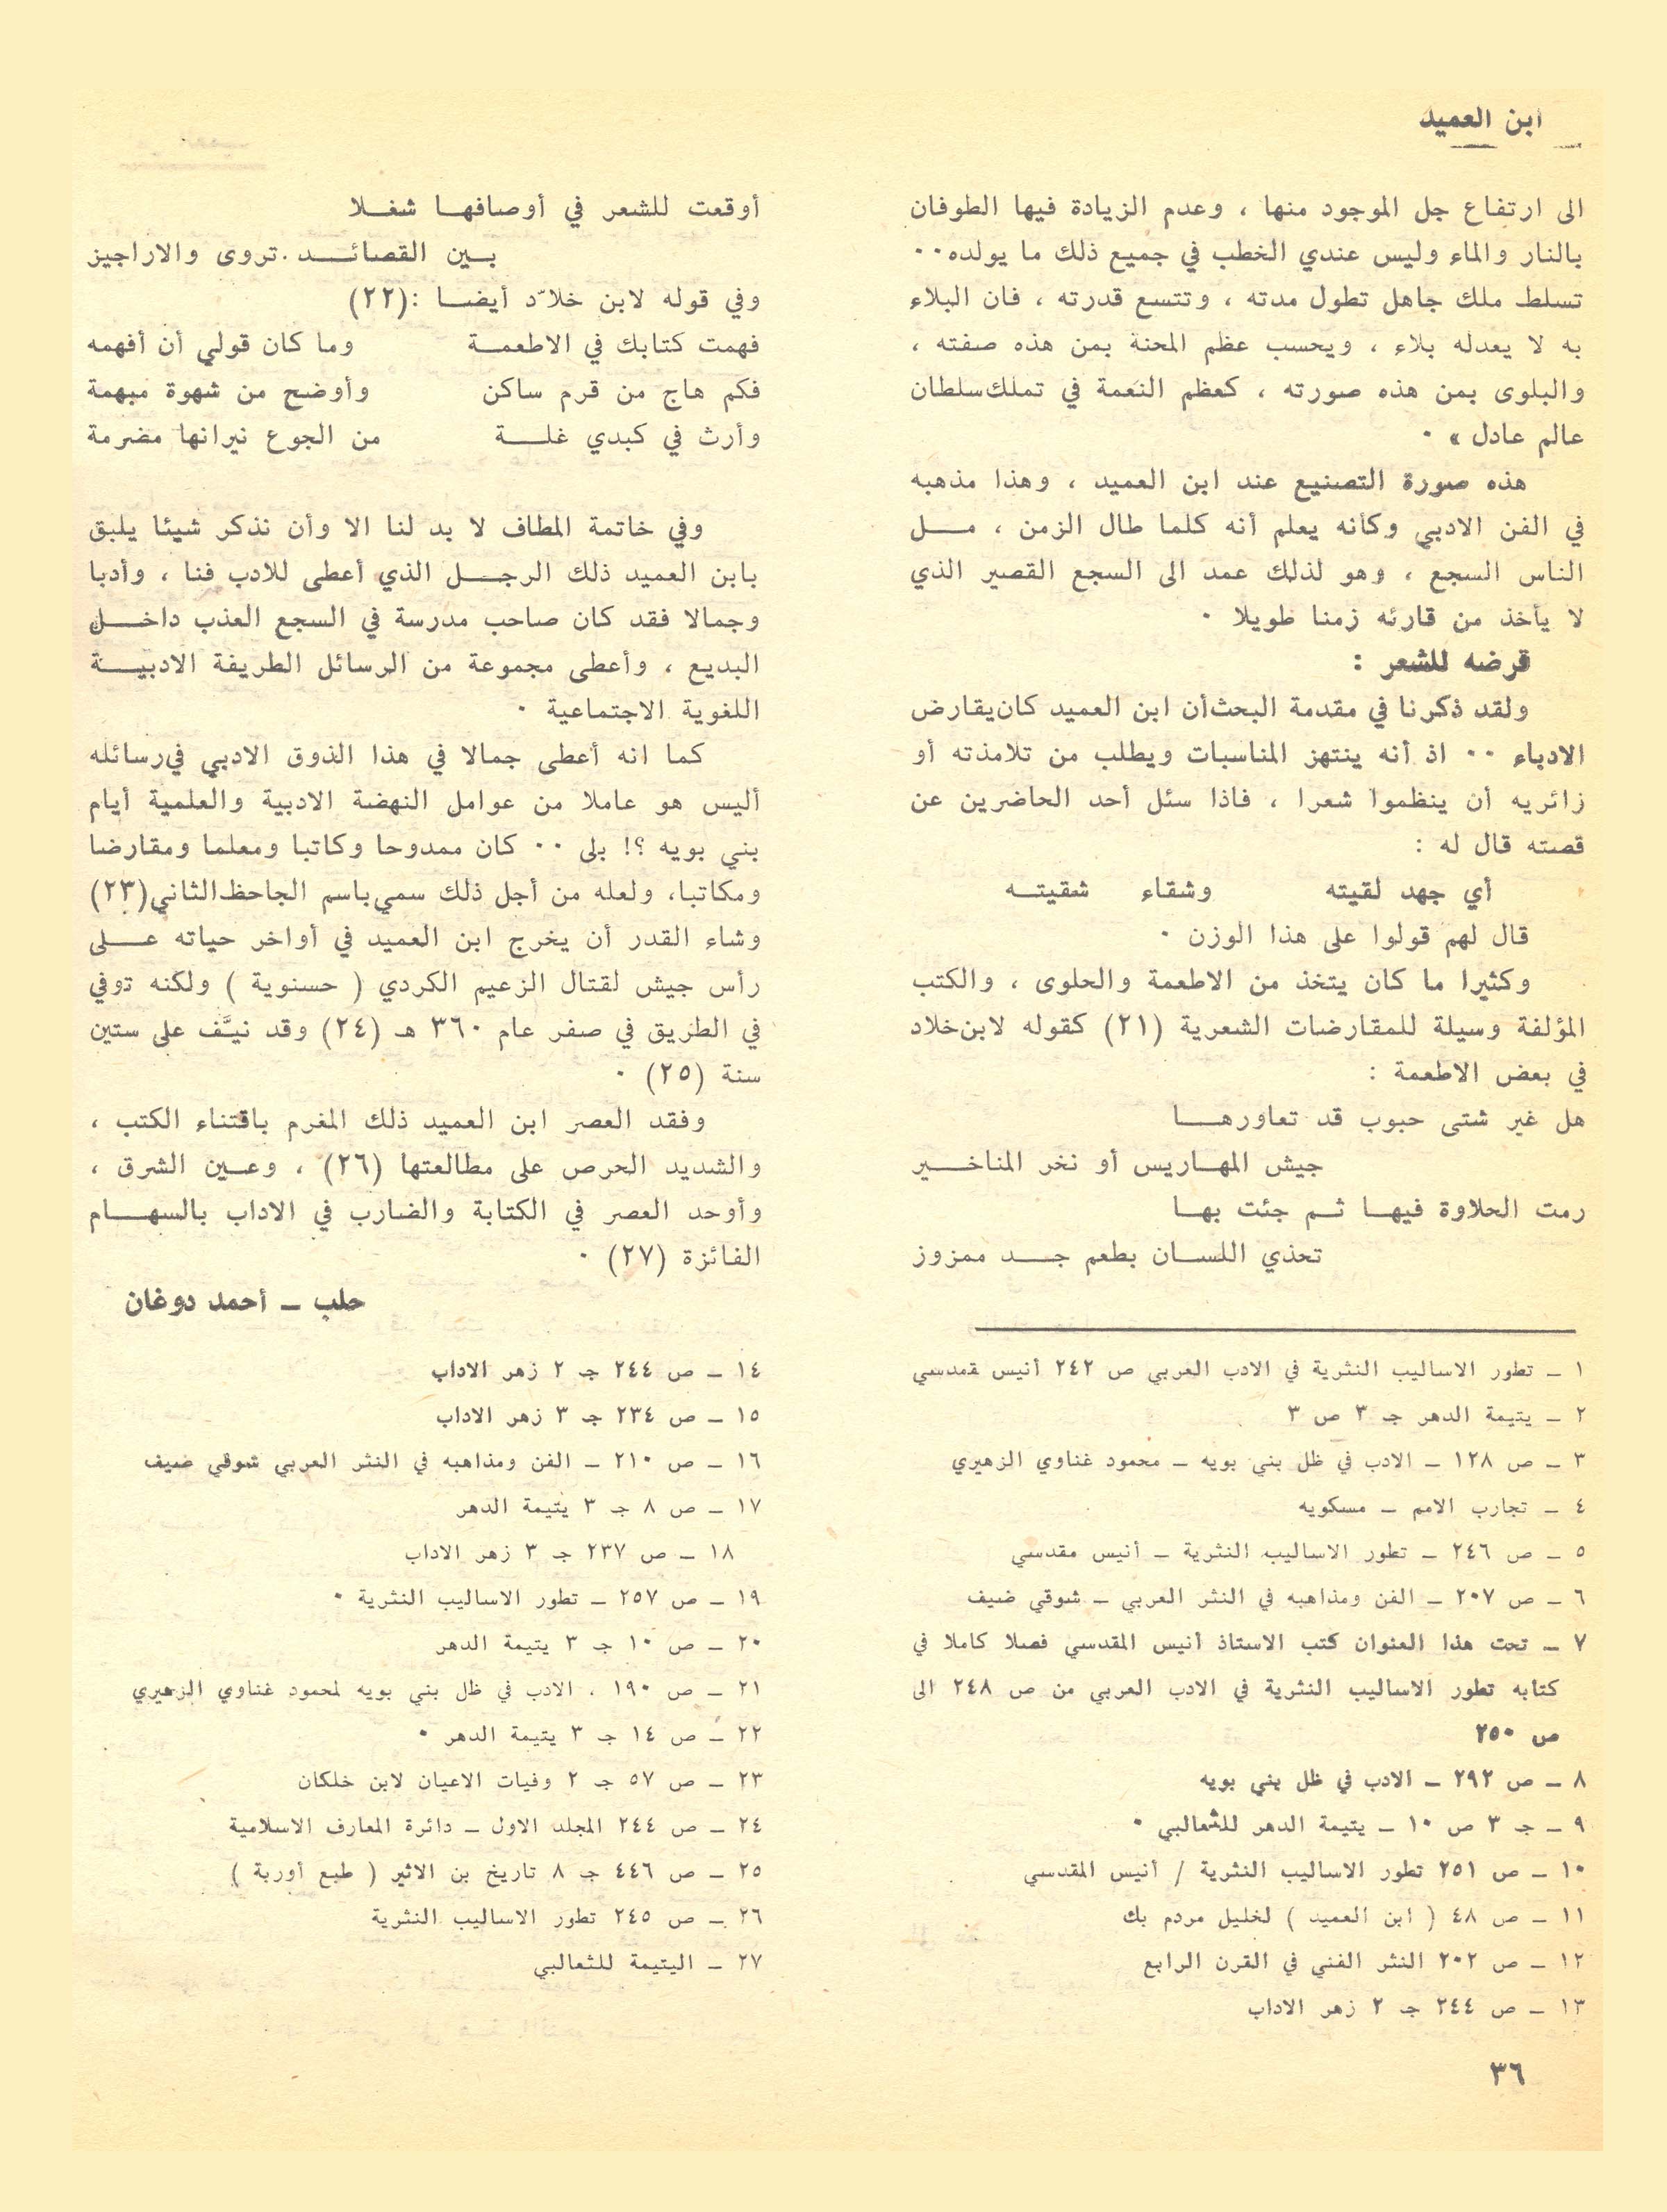 ابن العميد
الى ارتفاع جل الموجود منها ، وعدم الزيادة فيها الطوفان
بالنار والماء وليس عندي الخطب في جميع ذلك ما يولده٠٠
تسلط ملك جاهل تطول مدته ، وتتسع قدرته ، فان البلاء
به لا يعدله بلاء ، وبحسب عظم المحنة بمن هذه صفته ،
والبلوى بمن هذه صورته ، كعظم النعمة في تملك سلطان
عالم عادل » ٠
هذه صورة التصنيع عند ابن العميد ، وهذا مذهبه
في الفن الادبي وكأنه يعلم أنه كلما طال الزمن ، مــل
الناس السجع ، وهو لذلك عمد الى السجع القصير الذي
لا يأخذ من قارئه زمنا طويلا ٠
قرضه للشعر :
ولقد ذكرنا في مقدمة البحث أن ابن العميد كان يقارض
الادباء ٠٠ اذ أنه ينتهز المناسبات ويطلب من تلامذته أو
زائريه أن ينظموا شعرا ، فاذا سئل أحد الحاضرين عن
قصته قال له :
أي جهد لقيته وشقاء شقيتــه
قال لهم قولوا على هذا الوزن ٠
وكثيرا ما كان يتخذ من الاطعمة والحلوى ، والكتب
المؤلفة وسيلة للمقارضات الشعرية (٢١) كقوله لابن خلاد
في بعض الاطعمة :
هل غير شتى حبوب قد تعاورهــا
جيش المهــاريس أو نخر المناخــير
رمت الحلاوة فيهــا ثــم جئت بهــا
تحذي اللســان بطعم جــد ممزوز
أوقعت للشعر في أوصافهــا شغــلا
بــين القصائــد٠تروى والاراجيز
وفي قوله لابن خلاّد أيضــا :(٢٢)
فهمت كتابك في الاطعمــة وما كان قولي أن أفهمه
فكم هاج من قرم ساكن وأوضح من شهوة مبهمة
وأرث في كبدي غلــة من الجوع نيرانها مضرمة
وفي خاتمة المطاف لا بد لنا الا وأن نذكر شيئا يليق
بابن العميد ذلك الرجــل الذي أعطى للادب فنا ، وأدبا
وجمالا فقد كان صاحب مدرسة في السجع العذب داخــل
البديع ، وأعطى مجموعة من الرسائل الطريفة الادبيــة
اللغوية الاجتماعية ٠
كما انه أعطى جمالا في هذا الذوق الادبي في رسائله
أليس هو عاملا من عوامل النهضة الادبية والعلمية أيام
بني بويه ؟! بلى ٠٠ كان ممدوحا وكاتبا ومعلما ومقارضا
ومكاتبا، ولعله من أجل ذلك سمي باسم الجاحظ الثاني(٢٣)
وشاء القدر أن يخرج ابن العميد في أواخر حياته عــلى
رأس جيش لقتال الزعيم الكردي ( حسنوية ) ولكنه توفي
في الطريق في صفر عام ٣٦٠ هـ (٢٤) وقد نيَّف على ستين
سنة (٢٥) ٠
وفقد العصر ابن العميد ذلك المغرم باقتناء الكتب ،
والشديد الحرص على مطالعتها (٢٦) ، وعــين الشرق ،
وأوحد العصر في الكتابة والضارب في الاداب بالسهــام
الفائزة (٢٧) ٠
حلب ــ أحمد دوغان
١ ــ تطور الاساليب النثرية في الادب العربي ص ٢٤٢ أنيس مقدسي
٢ ــ يتيمة الدهر جـ ٣ ص ٣
٣ ــ ص ١٢٨ ــ الادب في ظل بني بويه ــ محمود غناوي الزهيري
٤ ــ تجارب الامم ــ مسكويه
٥ ــ ص ٢٤٦ ــ تطور الاساليب النثرية ــ أنيس مقدسي
٦ ــ ص ٢٠٧ ــ الفن ومذاهبه في النثر العربي ــ شوقي ضيف
٧ ــ تحت هذا العنوان كتب الاستاذ أنيس المقدسي فصلا كاملا في
كتابه تطور الاساليب النثرية في الادب العربي من ص ٢٤٨ الى
ص ٢٥٠
٨ ــ ص ٢٩٢ ــ الادب في ظل بني بويه
٩ ــ جـ ٣ ص ١٠ ــ يتيمة الدهر للثعالبي ٠
١٠ ــ ص ٢٥١ تطور الاساليب النثرية / أنيس المقدسي
١١ ــ ص ٤٨ ( ابن العميد ) لخليل مردم بك
١٢ ــ ص ٢٠٢ النثر الفني في القرن الرابع
١٣ ــ ص ٢٤٤ جـ ٢ زهر الاداب
١٤ ــ ص ٢٤٤ جـ ٢ زهر الاداب
١٥ ــ ص ٢٣٤ جـ ٣ زهر الاداب
١٦ ــ ص ٢١٠ ــ الفن ومذاهبه في النثر العربي شوقي ضيف
١٧ ــ ص ٨ جـ ٣ يتيمة الدهر
١٨ ــ ص ٢٣٧ جـ ٣ زهر الاداب
١٩ ــ ص ٢٥٧ ــ تطور الاساليب النثرية ٠
٢٠ ــ ص ١٠ جـ ٣ يتيمة الدهر
٢١ ــ ص ١٩٠ ، الادب في ظل بني بويه لمحمود غناوي الزهيري
٢٢ ــ ص ١٤ جـ ٣ يتيمة الدهر ٠
٢٣ ــ ص ٥٧ جـ ٢ وفيات الاعيان لابن خلكان
٢٤ ــ ص ٢٤٤ المجلد الاول ــ دائرة المعارف الاسلامية
٢٥ ــ ص ٤٤٦ جـ ٨ تاريخ بن الاثير ( طبع أوربة )
٢٦ ــ ص ٢٤٥ تطور الاساليب النثرية
٢٧ ــ اليتيمة للثعالبي
٣٦